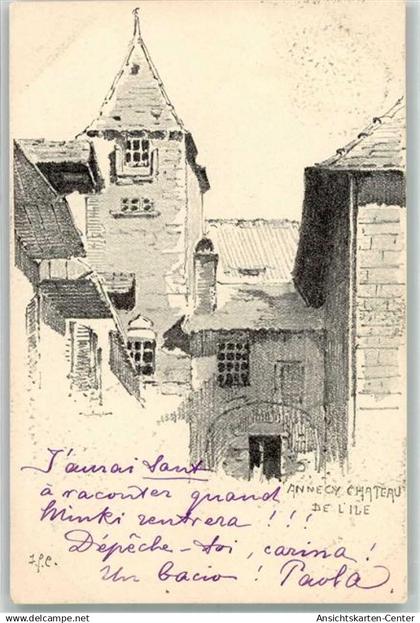 ANNECY CHATEAU
DE L'ILE
J'aurai tant
à raconter quand
Minki rentrera !!!
Dépêche-toi, carina !
Un bacio ! Paola
www.oldthing.de
Ansichtskarten-Center